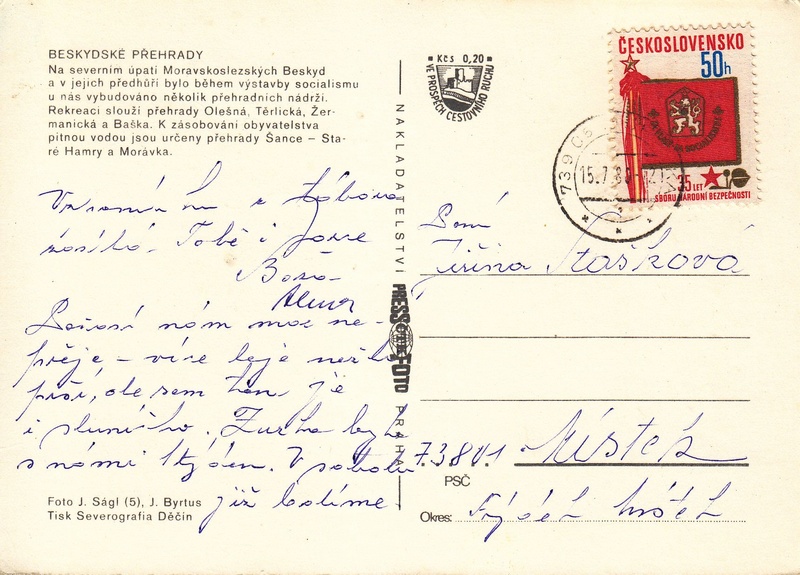 BESKYDSKÉ PŘEHRADY
Na severním úpatí Moravskoslezských Beskyd
a v jejich předhůří bylo během výstavby socialismu
u nás vybudováno několik přehradních nádrží.
Rekreaci slouží přehrady Olešná, Těrlická, Žer-
manická a Baška. K zásobování obyvatelstva
pitnou vodou jsou určeny přehrady Šance – Sta-
ré Hamry a Morávka.
z tábora
Tobě i
Počasí nám moc ne-
přeje – více leje než
prší, ale sem tam je
i sluníčko. byla
s námi týden. V sobotu
již balíme.
Foto J. Ságl (5), J. Byrtus
Tisk Severografia Děčín
NAKLADATELSTVÍ
PRESSFOTO
PRAHA
Kčs 0,20
VE PROSPĚCH CESTOVNÍHO RUCHU
ČESKOSLOVENSKO
50h
35 LET
SBORU NÁRODNÍ BEZPEČNOSTI
739 05
15.7.80
Paní
Jiřina Stašková
73801 Místek
PSČ
Okres: Frýdek Místek